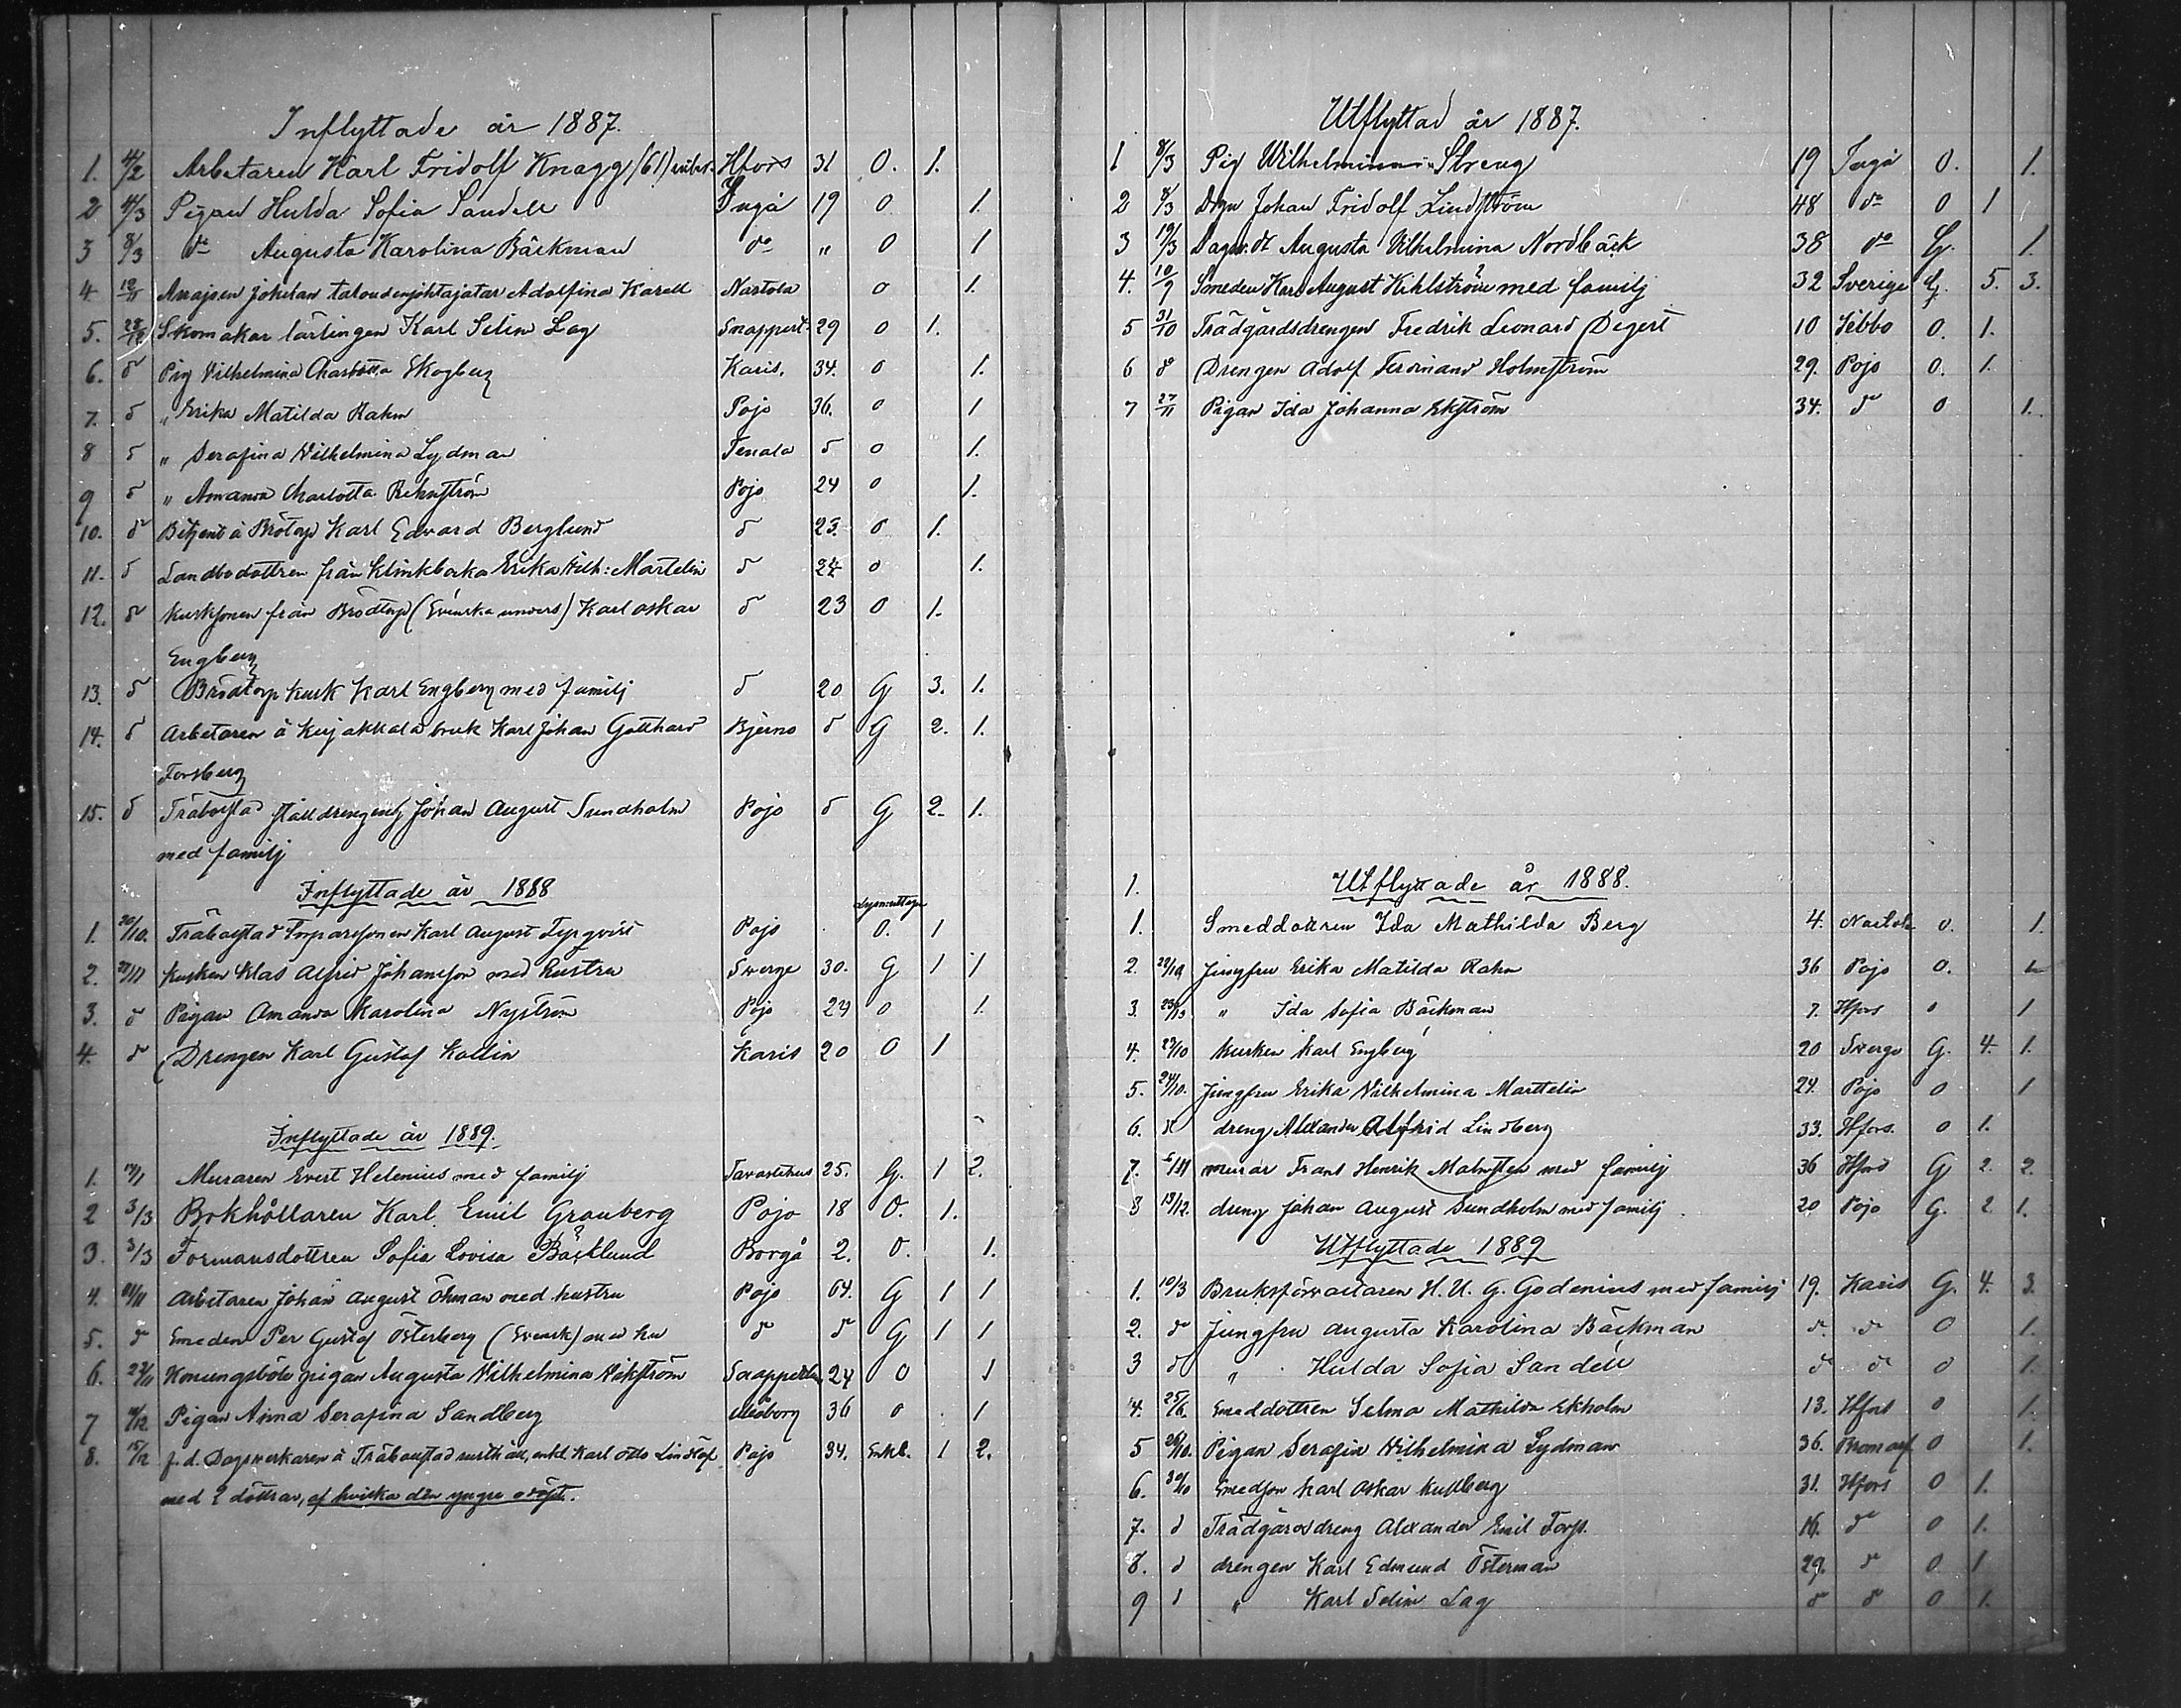 Inflyttade år 1887.
1. 4/2 Arbetaren Karl Fridolf Knagg (61) Hfors 31 O. 1.
2 4/3 Pigan Hulda Sofia Sandell Ingå 19 O 1.
3 8/3 do Augusta Karolina Bäckman do " O 1
4 Adolfina Karell Nastola O 1.
5. Skomakar lärlingen Karl Selin Lag Snappert. 29 O 1.
6. d Pig Vilhelmina Charlotta Skogberg Karis. 34. O 1.
7. d " Erika Matilda Rahm Pojo 36. O 1
8 d " Serafina Vilhelmina Lydman Tenala d O 1.
9 d " Amanda Charlotta Pojo 24 O 1.
10. d Betjent å Karl Edvard Berglund d 23. O 1.
11. d Landbodottren från Klinkbacka Erika Vilh: Martelin d 24 O 1.
12. d Kusksonen från Brödtorp Karl Oskar d 23 O 1.
Engberg
13. d Brödtorp kusk Karl Engberg med familj d 20 G 3. 1.
14. d Arbetaren å Kirjakkala bruk Karl Johan Gotthard Bjerno d G 2. 1.
Forsberg
15. d stalldrengen Johan August Sundholm Pojo d G 2. 1.
med familj
Inflyttade år 1888
1. 20/10. Karl August Pojo O. 1
2. Kusken Klas Alfrid Johansson med hustru Sverge 30. G 1 1
3. d Pigan Amanda Karolina Nyström Pojo 24 O 1.
4. d Drengen Karl Gustaf Kollin Karis 20 O 1
Inflyttade år 1889.
1. Muraren Evert Helenius med familj Tavastehus 25. G. 1 2.
2 3/3 Bokhållaren Karl Emil Granberg Pojo 18 O. 1.
3. 3/3 Formansdottren Sofia Lovisa Bäcklund Borgå 2. O. 1.
4. Arbetaren Johan August Öhman med hustru Pojo 64. G 1 1
5. d Smeden Per Gustaf Österberg (Svensk) med hu d d G 1 1
6. pigan Augusta Vilhelmina Wikström 24 O 1
7 Pigan Anna Serafina Sandberg 36 O 1
8. 15/12 f. d. Dagsverkaren å Karl Otto Lindlöf Pojo 34. Enkl. 1 2.
med 2 döttrar, af hvilka den yngre
Utflyttad år 1887.
1 8/3 Pig Wilhelmina Streng 19 Ingå O. 1.
2 8/3 Drgn Johan Fridolf Lindström 48 do O 1
3 19/3 Dagsv. dt Augusta Vilhelmina Nordbäck 38 do G. 1.
4. 10/9 Smeden Karl August Kihlström med familj 32 Sverige G. 5. 3.
5 31/10 Trädgårdsdrengen Fredrik Leonard Degert 10 Sibbo O. 1.
6 d Drengen Adolf Ferdinand Holmström 29. Pojo O. 1.
7 27/11 Pigan Ida Johanna Ekström 34. d O 1.
1. Utflyttade år 1888.
1. Smeddottren Ida Mathilda Berg 4. Nastola O. 1.
2. Jungfru Erika Matilda Rahm 36 Pojo O. 1
3. " Ida Sofia Bäckman 7. Hfors O 1
4. 24/10 Kusken Karl Engberg 20 Sverge G. 4. 1.
5. 24/10. Jungfru Erika Vilhelmina Marttelin 24. Pojo O 1
6. d dreng Alexander Alfrid Lindberg 33. Hfors. O 1.
7. murar Frans Henrik Malmsten med familj 36 Hfors G 2. 2.
8 13/12. dreng Johan August Sundholm med familj 20 Pojo G. 2 1.
Utflyttade 1889
1. 10/3 Bruksförvaltaren H. U. G. Godenius med familj 19. Karis G. 4. 3.
2. d Jungfru Augusta Karolina Bäckman d. d O 1.
3 d " Hulda Sofia Sandell d d O 1.
4. 25/6. Smeddottren Selma Mathilda Ekholm 13. Hfors O 1.
5 26/10. Pigan Serafin Wilhelmina Lydman 36. Bromarf O 1.
6. 30/10 Smedson Karl Oskar Kullberg 31. Hfors O 1.
7. d Trädgårdsdreng Alexander Emil Forss. 16. d O 1.
8. d drengen Karl Edmund Österman 29. d O 1
9 d " Karl Selin Lag d d O 1.